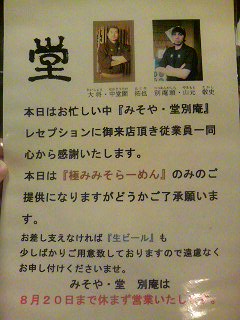 堂
大将・中堂園 拓也
別庵頭・山元 毅史
本日はお忙しい中『みそや・堂別庵』
レセプションに御来店頂き従業員一同
心から感謝いたします。
本日は『極みみそらーめん』のみのご
提供になりますがどうかご了承願いま
す。
お差し支えなければ『生ビール』も
少しばかりご用意致しておりますので遠慮なく
お申し付けくださいませ。
みそや・堂 別庵は
8月20日まで休まず営業いたします。